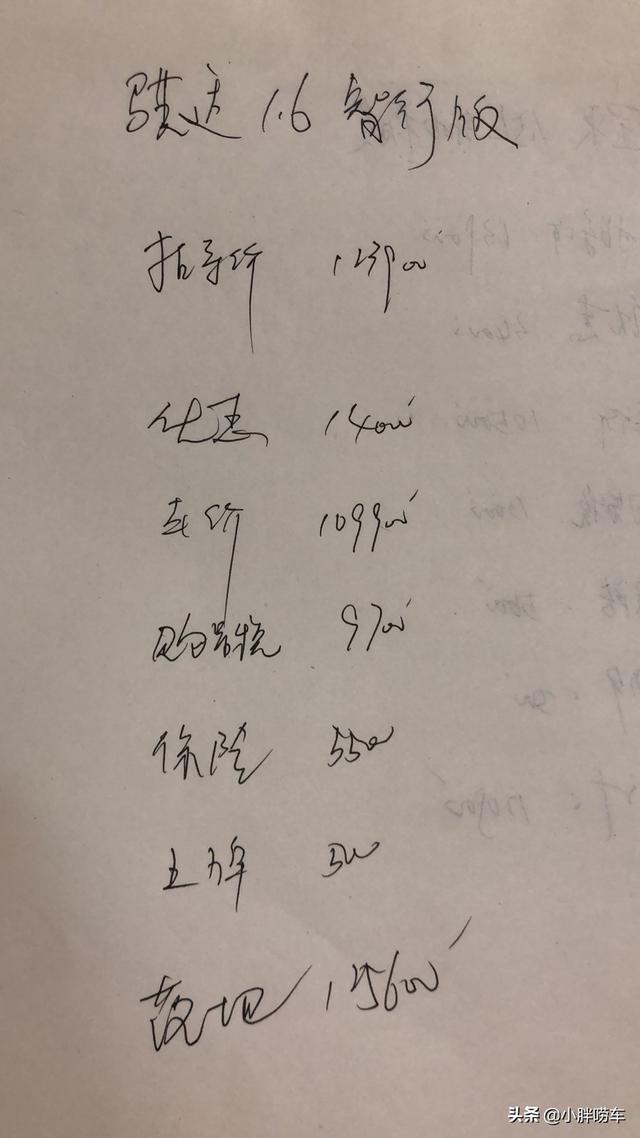 骐达 1.6 智行版
指导价 123900
优惠 14000
车价 109900
购置税 9700
保险 5500
上牌 500
落地 125600
头条 @小胖唠车